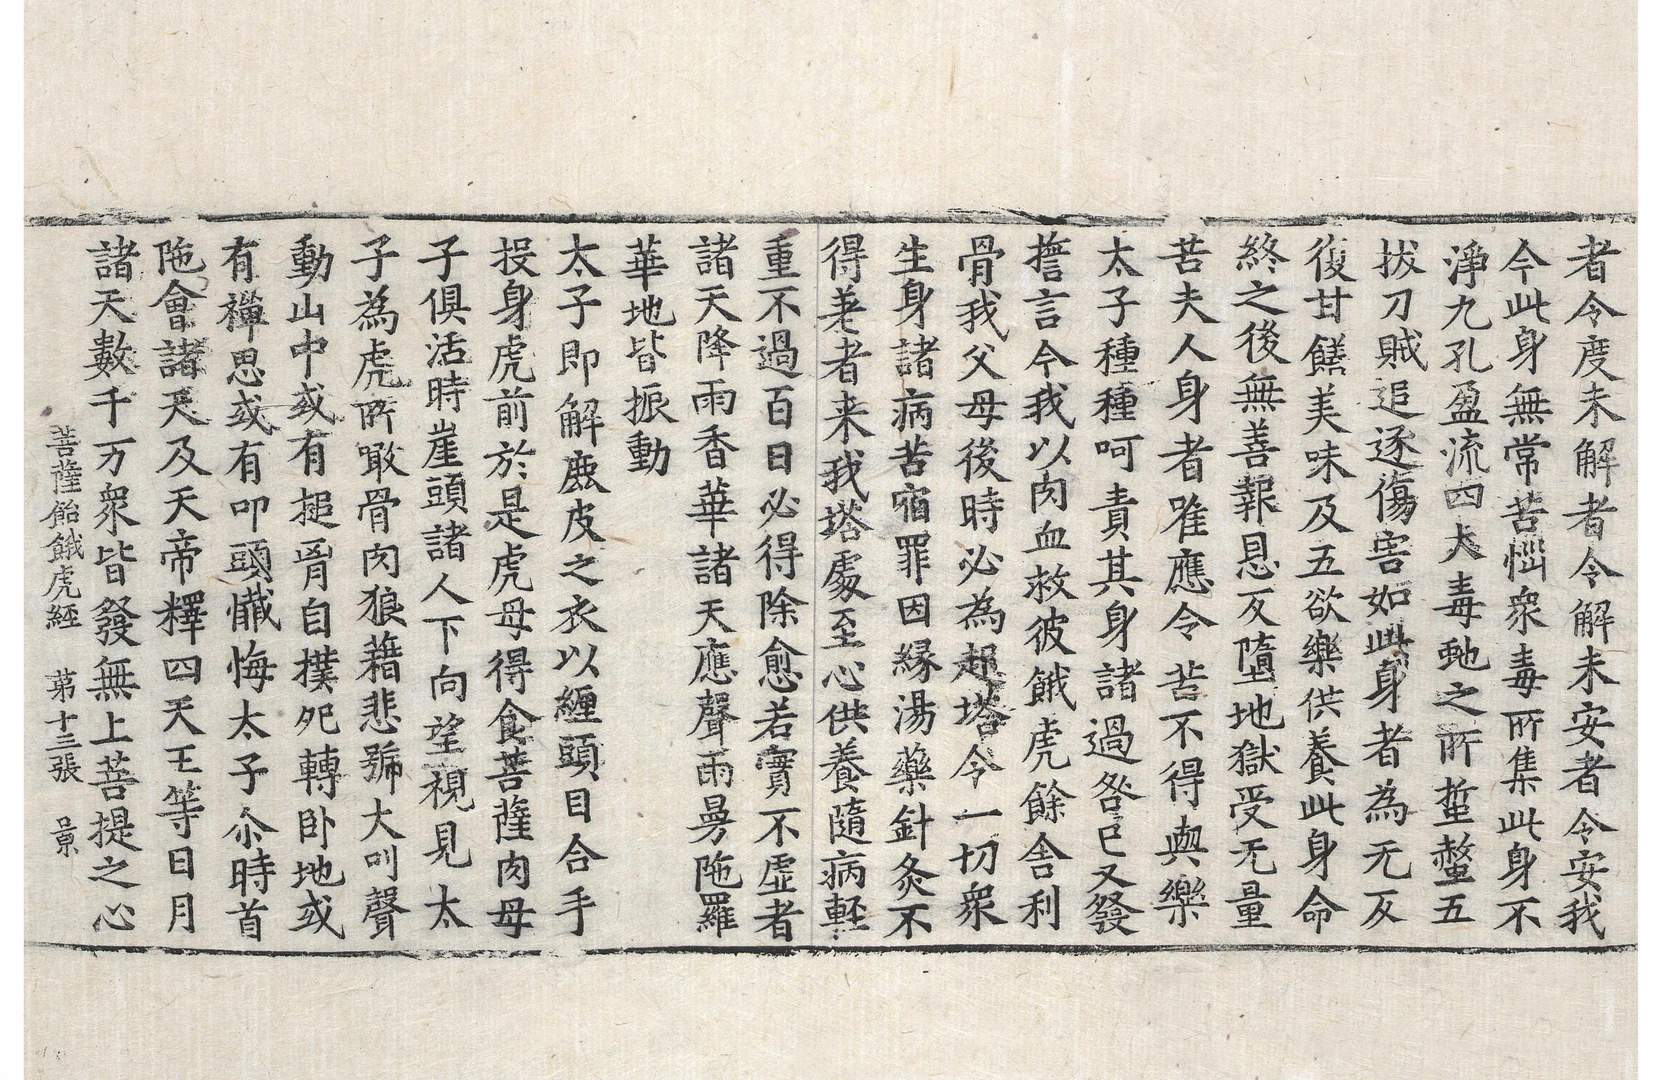 者令度未解者令解未安者令安我
今此身無常苦惱衆毒所集此身不
淨九孔盈流四大毒虵之所蜇螫五
拔刀賊追逐傷害如此身者為无反
復甘饍美味及五欲樂供養此身命
終之後無善報恩反墮地獄受无量
苦夫人身者唯應令苦不得與樂
太子種種呵責其身諸過咎已又發
誓言今我以肉血救彼餓虎餘舍利
骨我父母後時必為起塔令一切衆
生身諸病苦宿罪因緣湯藥針灸不
得差者来我塔處至心供養隨病輕
重不過百日必得除愈若實不虛者
諸天降雨香華諸天應聲雨曼陁羅
華地皆振動
太子即解鹿皮之衣以纏頭目合手
投身虎前於是虎母得食菩薩肉母
子俱活時崖頭諸人下向望視見太
子為虎所噉骨肉狼藉悲號大叫聲
動山中或有搥胷自撲死轉卧地或
有禪思或有叩頭懺悔太子尒時首
陁會諸天及天帝釋四天王等日月
諸天數千万衆皆發無上菩提之心
菩薩飴餓虎經 苐十三張 景